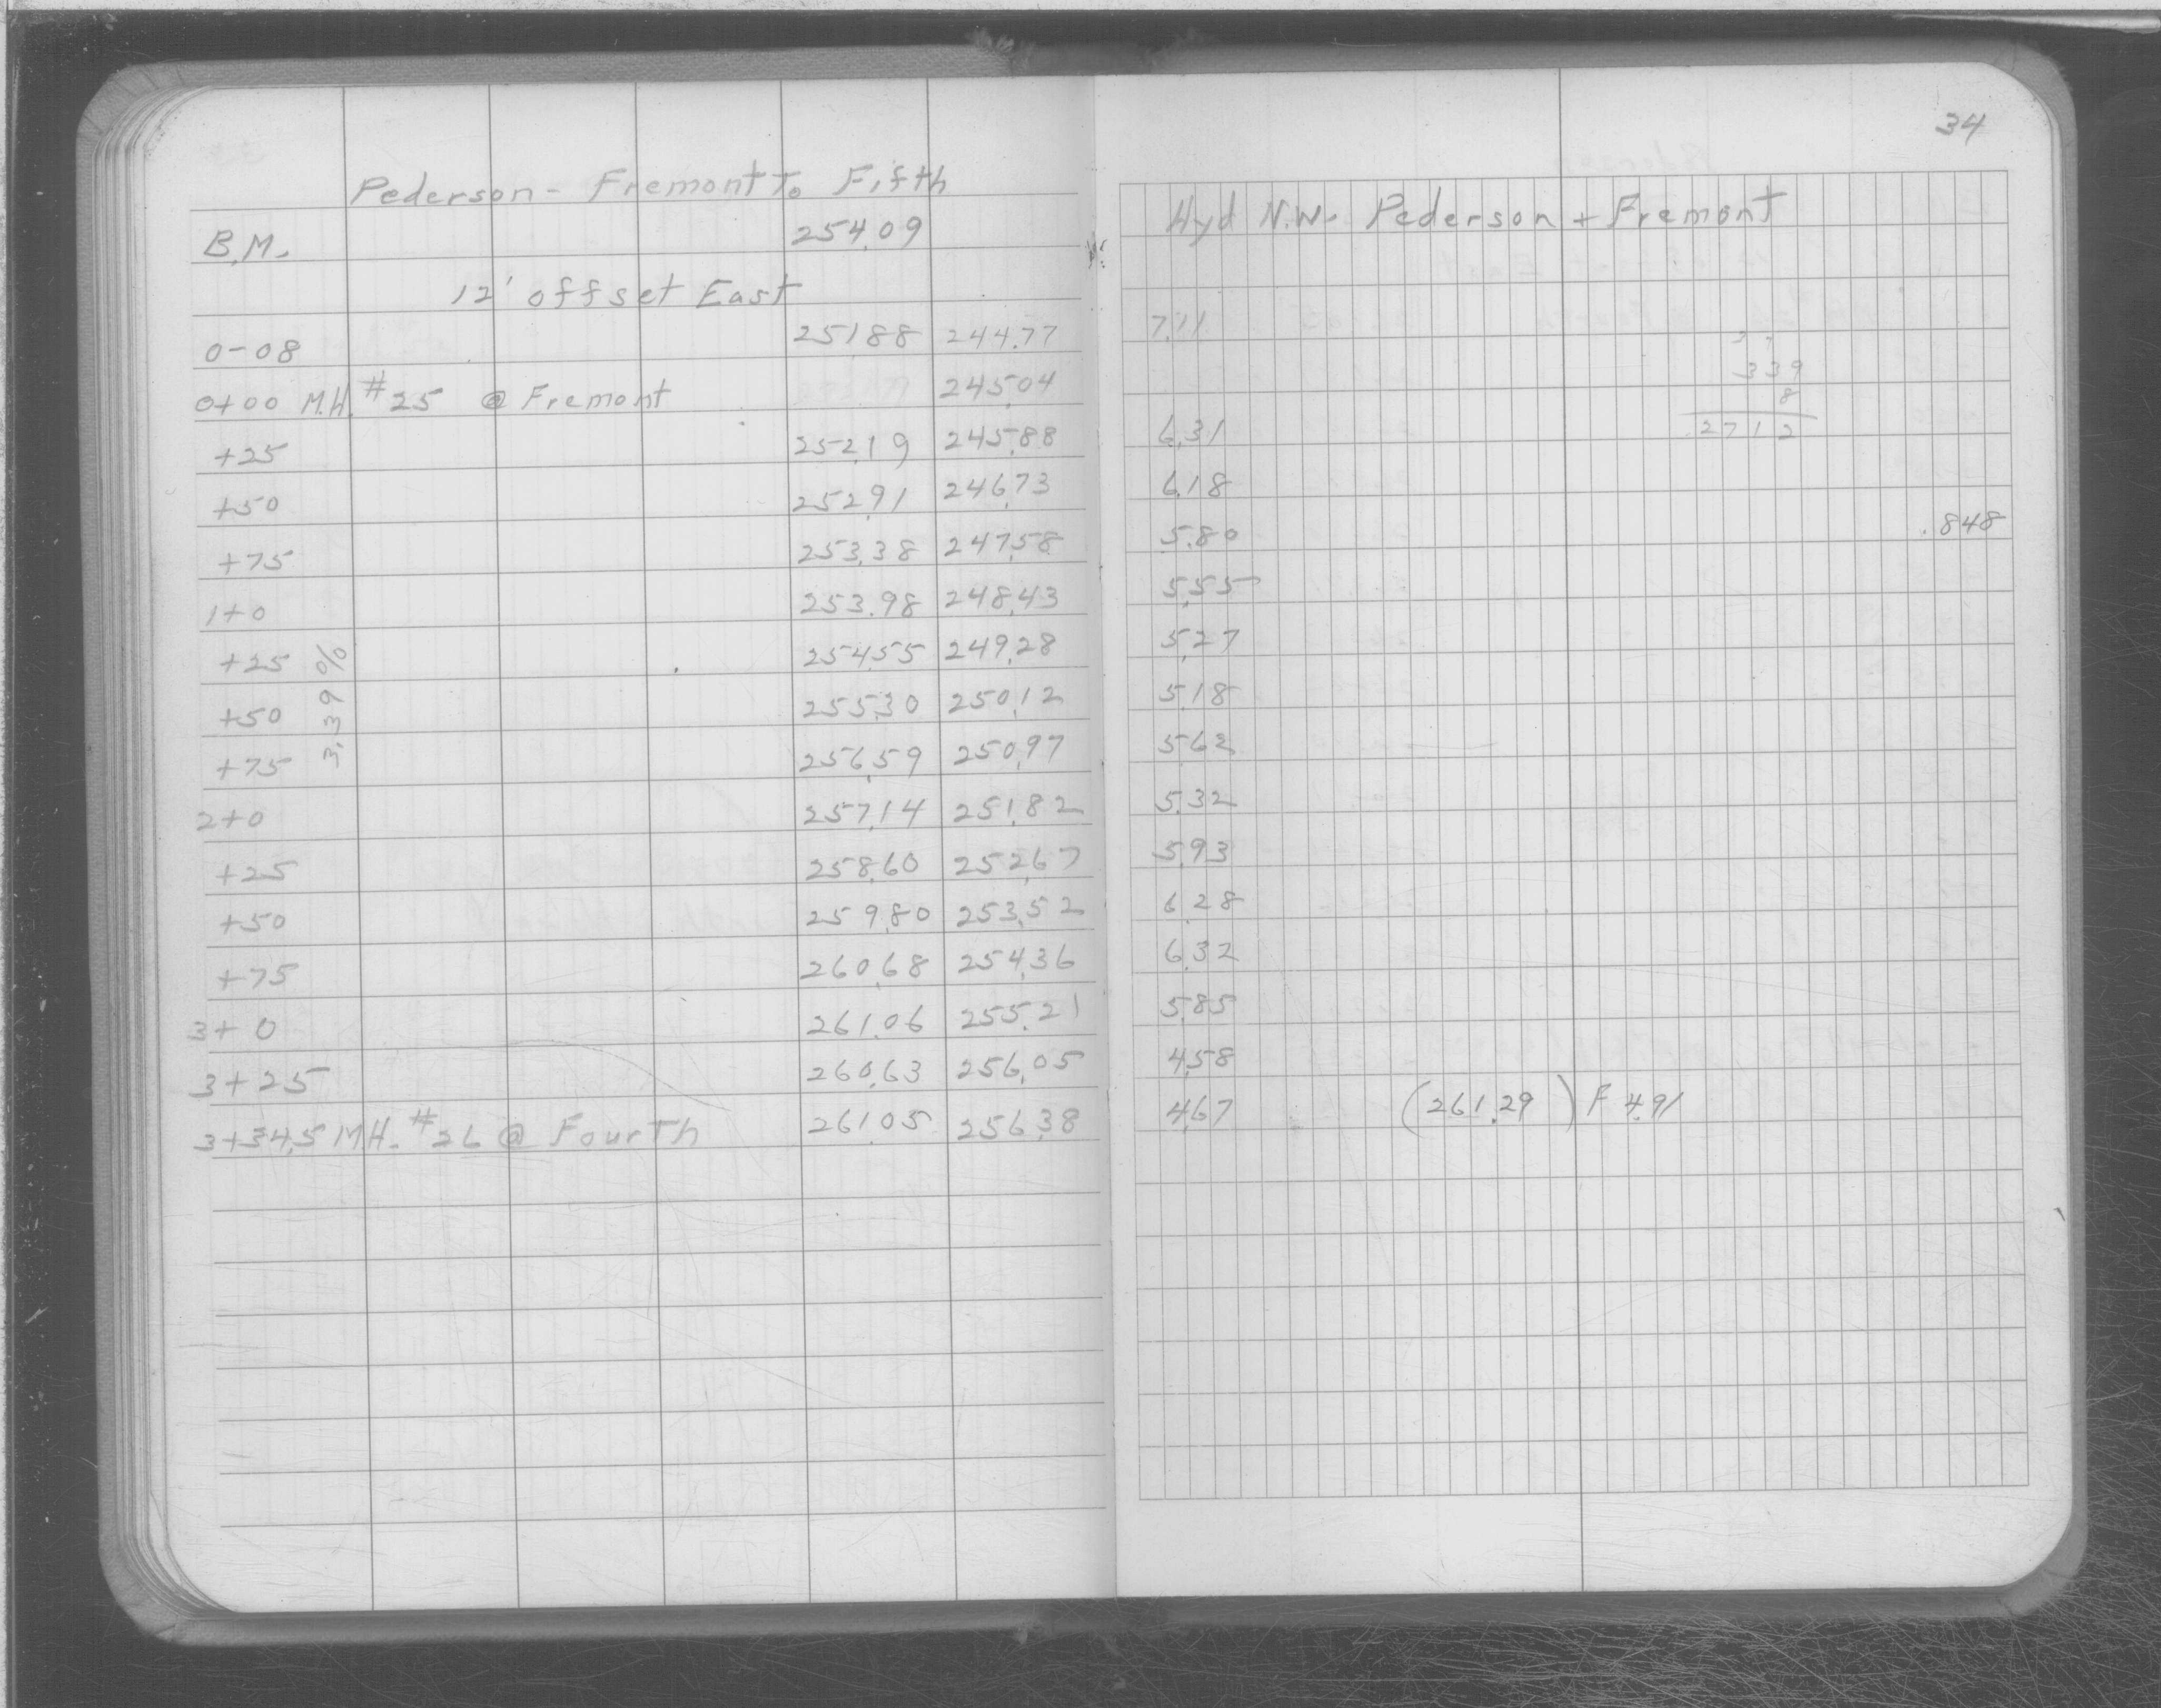 34
Pederson - Fremont To Fifth
B.M. 254.09 Hyd N.W. Pederson + Fremont
12' offset East
0-08 251.88 244.77 7.11
339
0+00 M.H. #25 @ Fremont 245.04 8
+25 252.19 245.88 6.31 2712
+50 252.91 246.73 6.18
+75 253.38 247.58 5.80 .848
1+0 253.98 248.43 5.55
+25 254.55 249.28 5.27
+50 255.30 250.12 5.18
+75 256.59 250.97 5.62
3.39 %
2+0 257.14 251.82 5.32
+25 258.60 252.67 5.93
+50 259.80 253.52 6.28
+75 260.68 254.36 6.32
3+0 261.06 255.21 5.85
3+25 260.63 256.05 4.58
3+34.5 M.H. #26 @ Fourth 261.05 256.38 4.67 (261.29) F 4.91